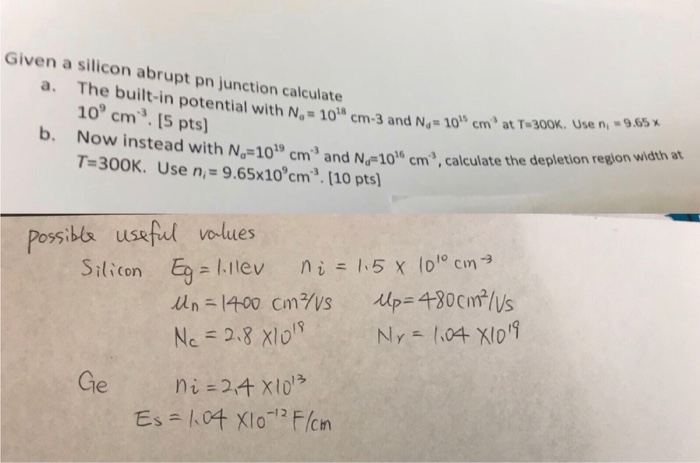 Given a silicon abrupt pn junction calculate
a. The built-in potential with Nₐ = 10¹⁸ cm-3 and N_d= 10¹⁵ cm⁻³ at T=300K. Use nᵢ = 9.65 x
10⁹ cm⁻³. [5 pts]
b. Now instead with Nₐ=10¹⁹ cm⁻³ and N_d=10¹⁶ cm⁻³, calculate the depletion region width at
T=300K. Use nᵢ = 9.65x10⁹cm⁻³. [10 pts]
possible useful values
Silicon Eg = 1.11ev ni = 1.5 x 10¹⁰ cm⁻³
μn = 1400 cm²/VS μp = 480cm²/Vs
Nc = 2.8 X10¹⁹ Nv = 1.04 X10¹⁹
Ge ni = 2.4 X10¹³
Es = 1.04 X10⁻¹² F/cm